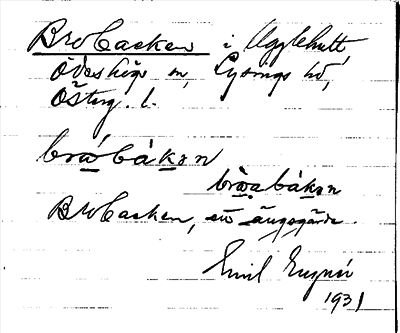 Brobacken i Ugglehult,
Ödeshögs sn, Lysings hd,
Österg. l.
brωbákən
brωabákən
Brobacken, en ängsgärde.
Emil
1931